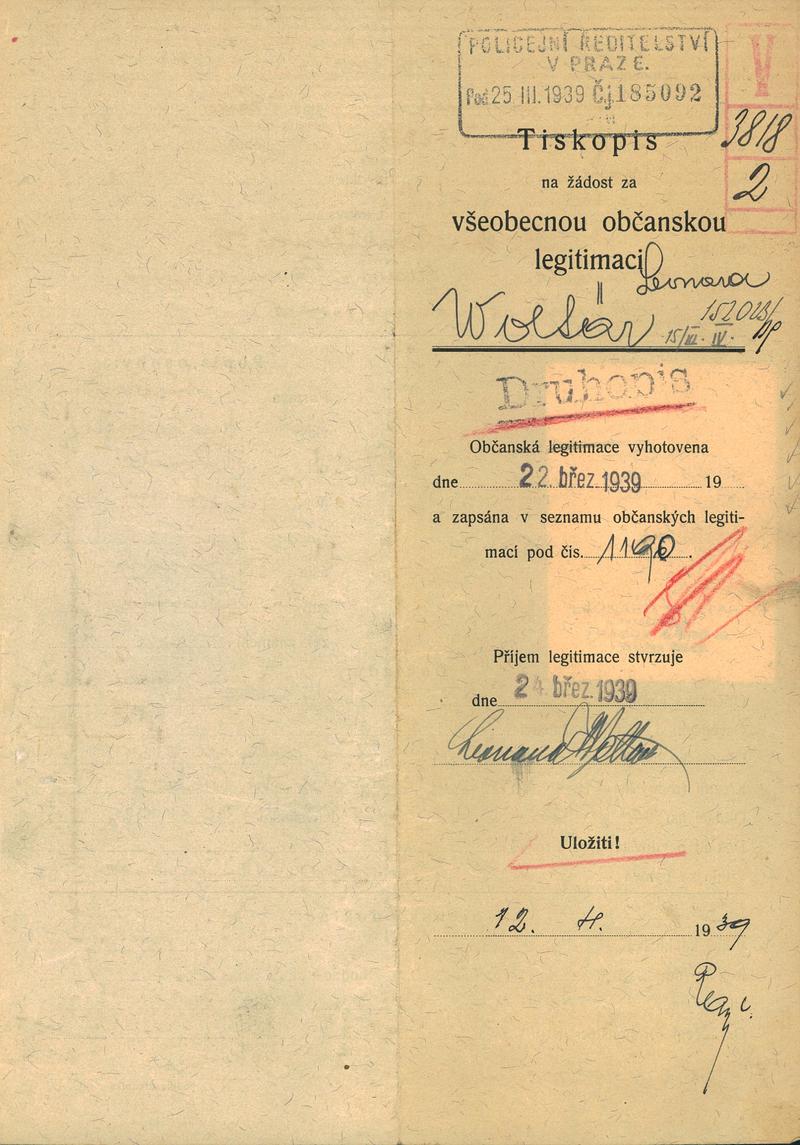 POLICEJNÍ ŘEDITELSTVÍ
V PRAZE.
Poč 25. III. 1939 Čj. 185092
V
3818
2
Tiskopis
na žádost za
všeobecnou občanskou
legitimaci
Druhopis
Občanská legitimace vyhotovena
dne 22. břez. 1939 19
a zapsána v seznamu občanských legiti-
mací pod čís. 1190.
Příjem legitimace stvrzuje
dne 24. břez. 1939
Uložiti!
12. 4. 1939